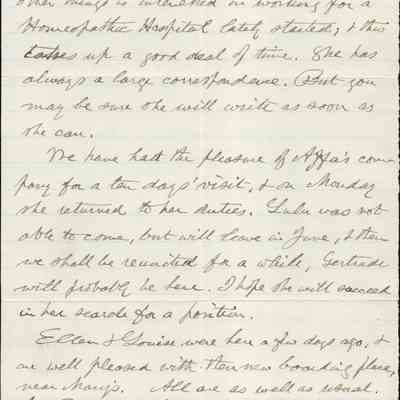 other things is interested in working for a
Homeopathic Hospital lately started, & this
takes up a good deal of time. She has
always a large correspondence. But you
may be sure she will write as soon as
she can.
We have had the pleasure of Affa's com-
pany for a ten days' visit, & on Monday
she returned to her duties. Lulu was not
able to come, but will leave in June, & then
we shall be reunited for a while, Gertrude
will probably be here. I hope she will succeed
in her search for a position.
Ellen & Louise were here a few days ago, &
are well pleased with their new boarding place,
near Mary's. All are as well as usual.